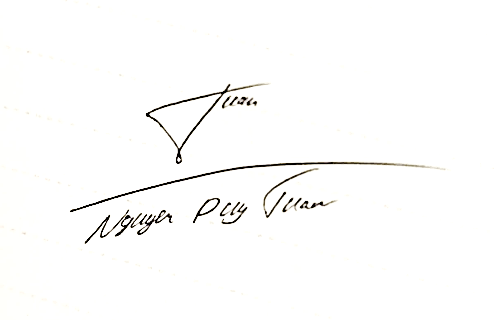 Tuan
Nguyen Duy Tuan